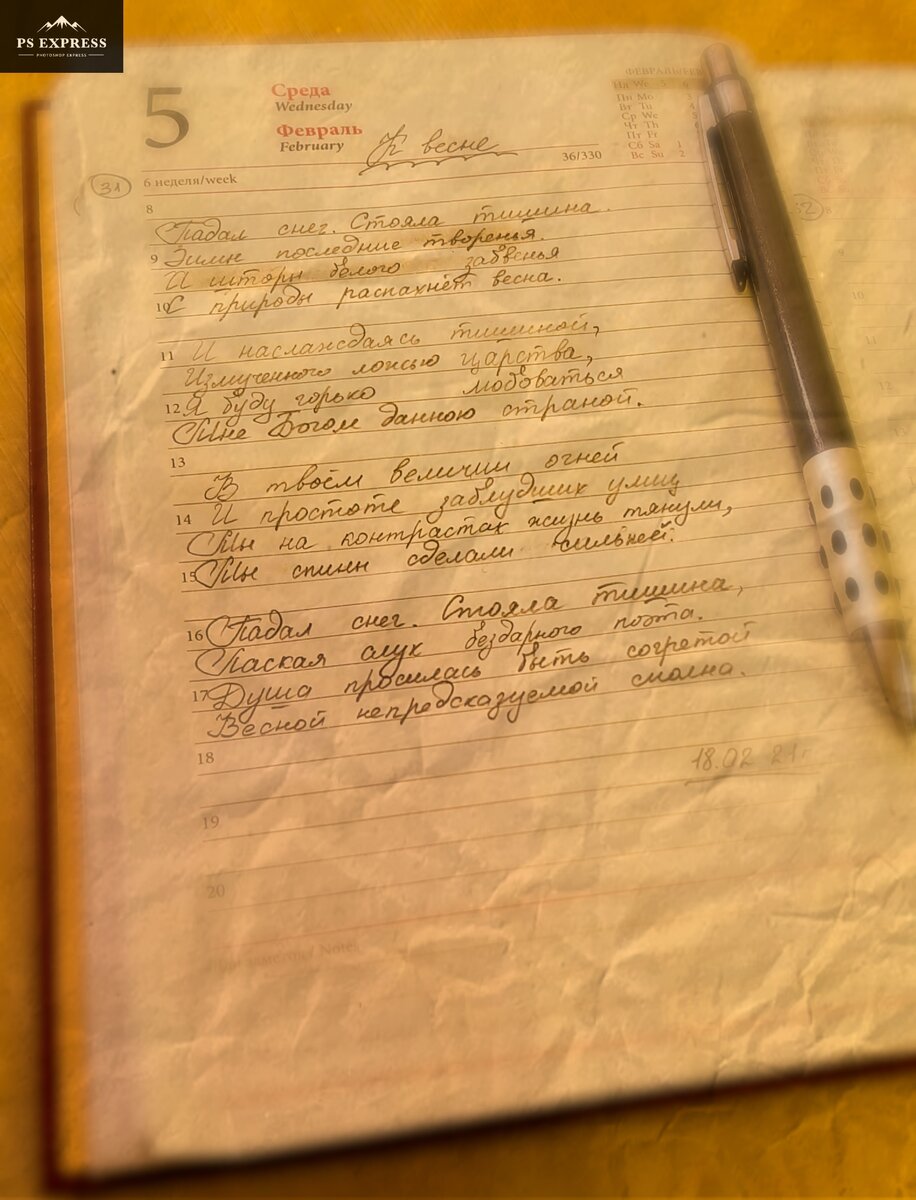 PS EXPRESS
PHOTOSHOP EXPRESS
5
Среда
Wednesday
Февраль
February
К весне
36/330
ФЕВРАЛЬ/FEB
Нд We 5 6
Пн Mo 3
Вт Tu 4
Ср We 5
Чт Th 6
Пт Fr
Сб Sa 1
Вс Su 2
31
6 неделя/week
8
Падал снег. Стояла тишина.
9 Зимы последние творенья.
И шторы белого забвенья
10 С природы распахнёт весна.
11 И наслаждаясь тишиной,
Измученного ложью царства,
12 Я буду горько любоваться
Мне Богом данною страной.
13
В твоём величии огней
14 И простоте заблудших улиц
Мы на контрастах жизнь тянули,
15 Мы спины сделали сильней.
16 Падал снег. Стояла тишина,
Лаская слух бездарного поэта.
17 Душа просилась быть согретой
Весной непредсказуемой сполна.
18
18.02 21г
19
20
Notes
32
8
9
10
11
12
13